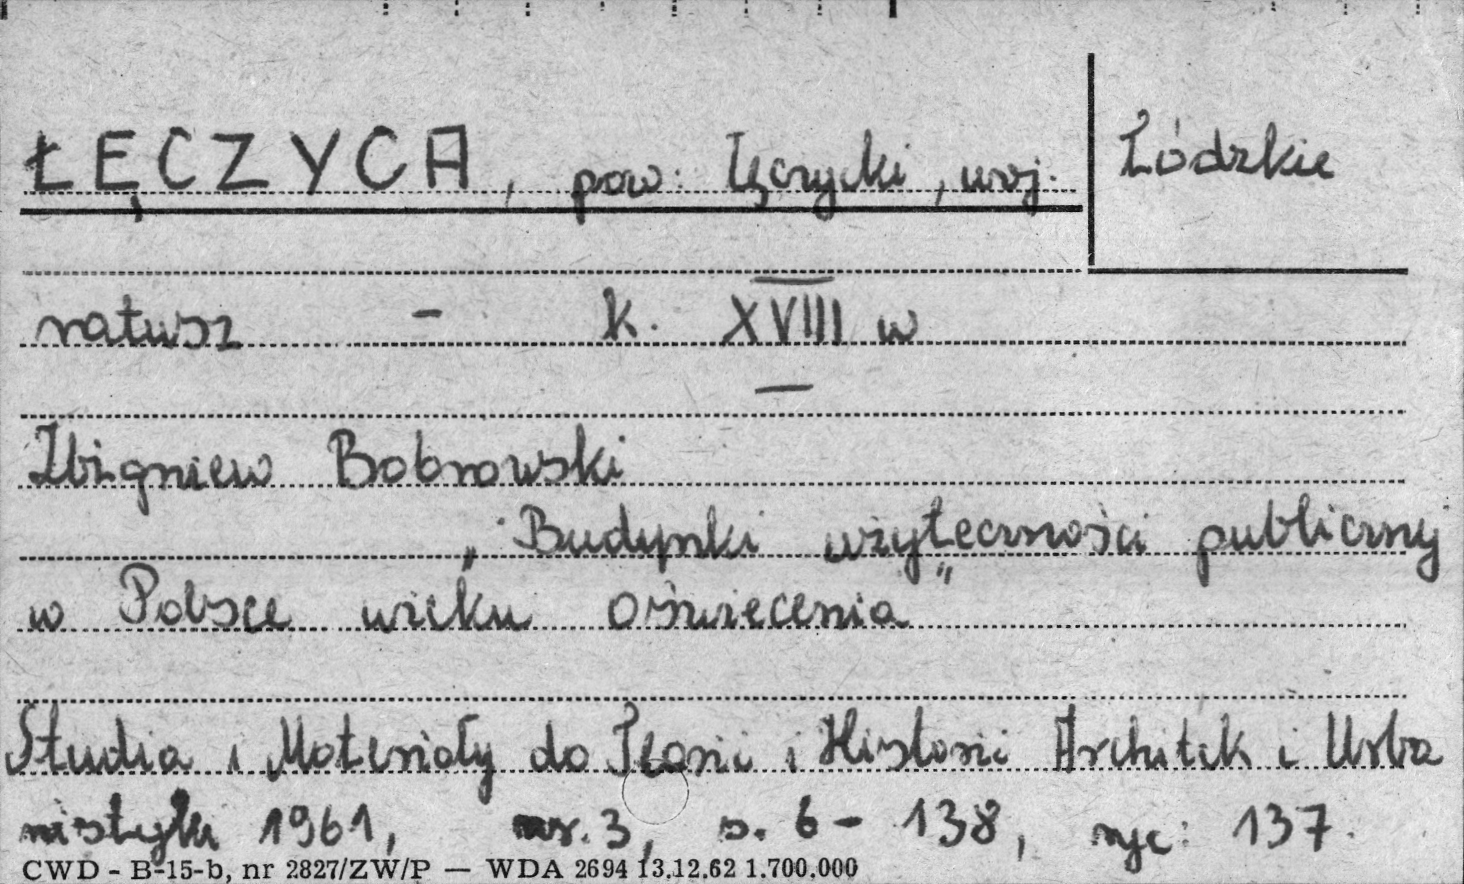 ŁĘCZYCA, pow. łęczycki, woj. Łódzkie
ratusz - k. XVIII w
Zbigniew Bobrowski
„Budynki użyteczności publicznej
w Polsce wieku oświecenia"
Studia i Materiały do Teorii i Historii Architek i Urba
nistyki 1961, nr. 3, s. 6 - 138, ryc: 137.
CWD - B-15-b, nr 2827/ZW/P — WDA 2694 13.12.62 1.700.000